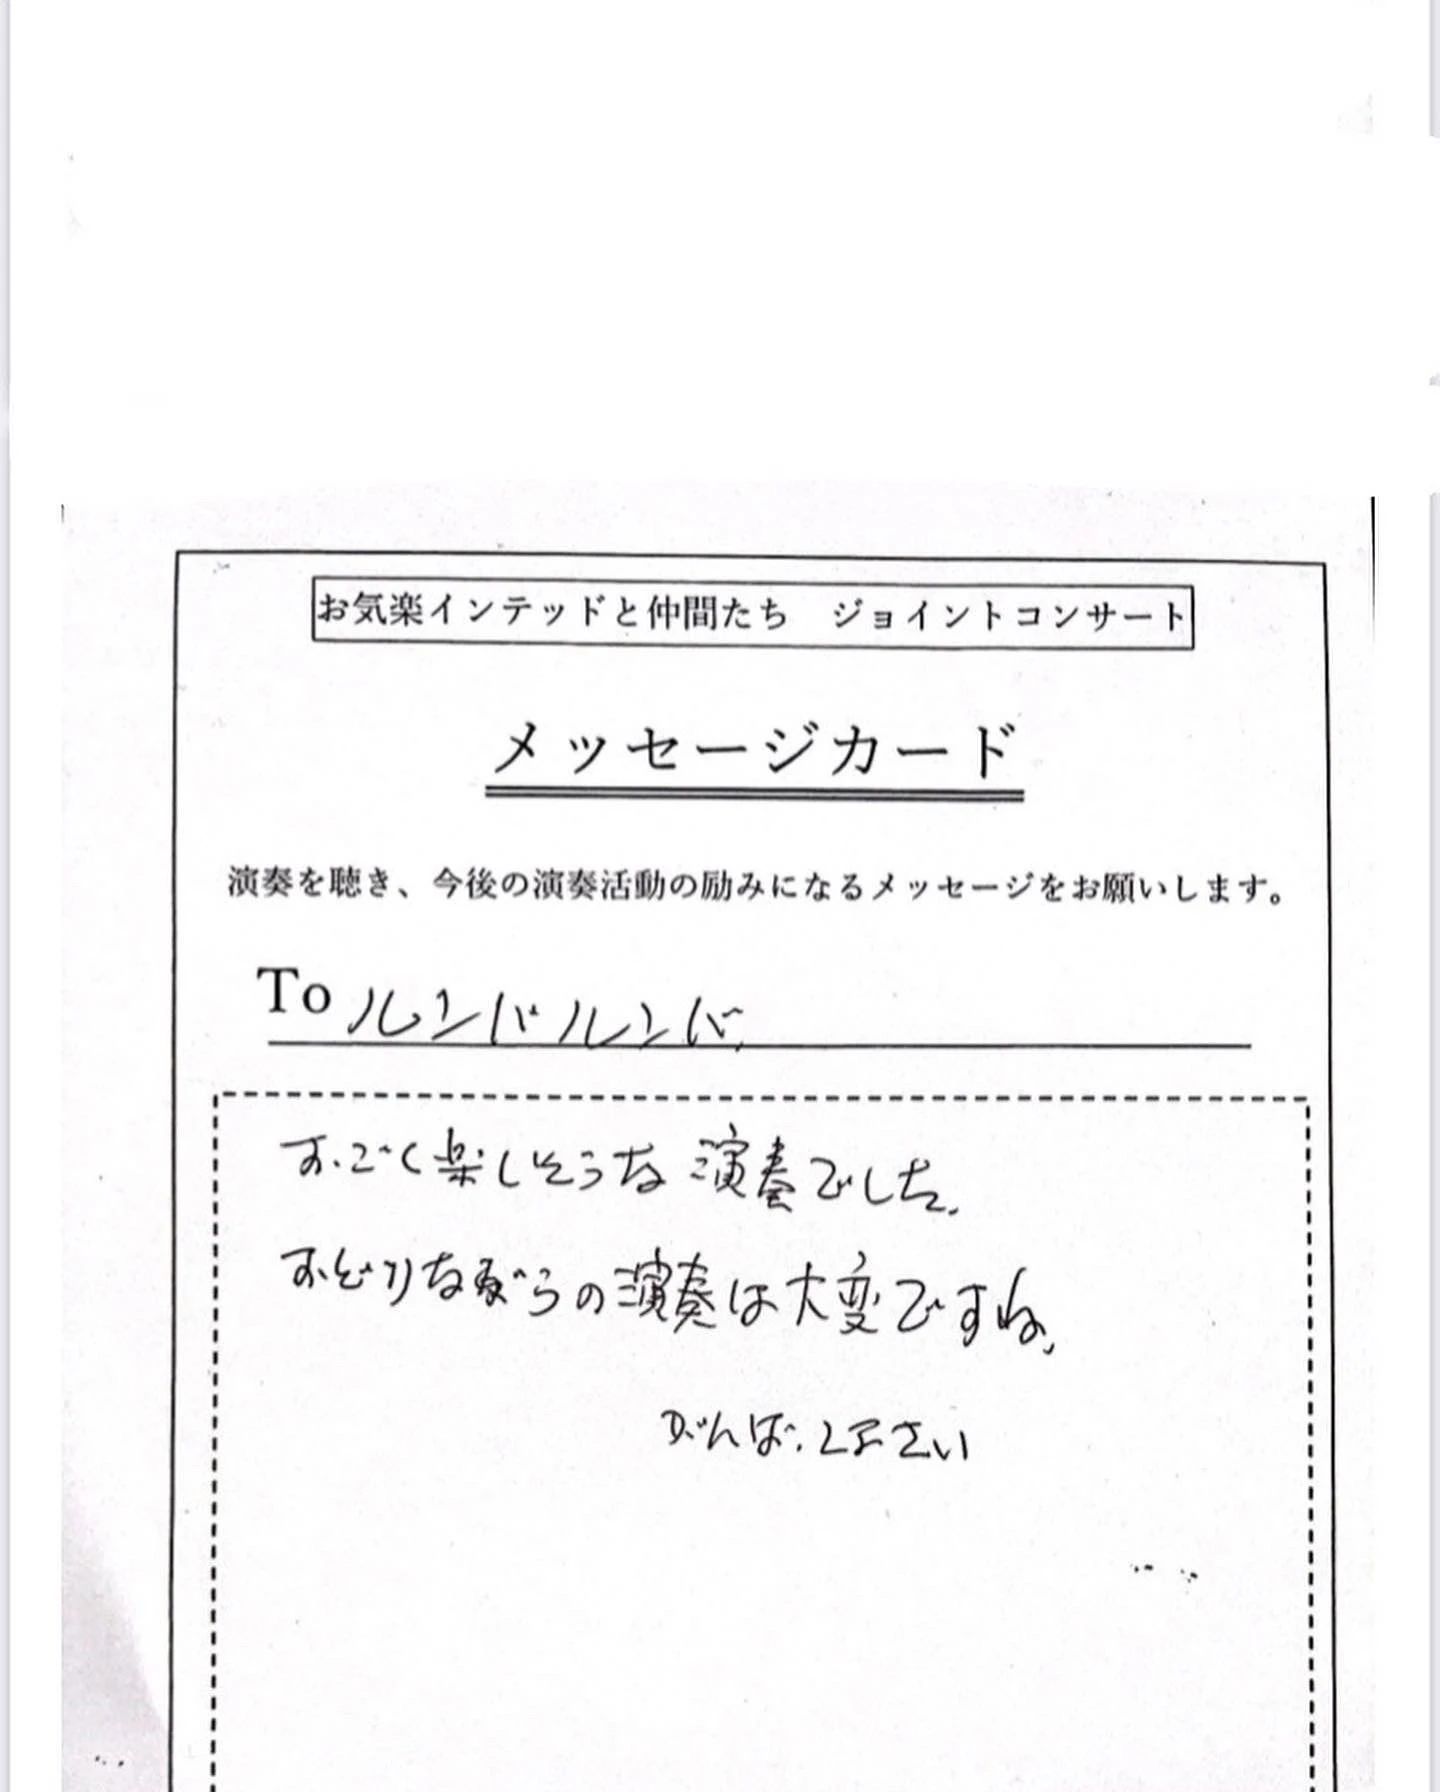 お気楽インテッドと仲間たち　ジョイントコンサート
メッセージカード
演奏を聴き、今後の演奏活動の励みになるメッセージをお願いします。
To ルンバルンバ
すごく楽しそうな演奏でした。
おどりながらの演奏は大変ですね、
がんばって下さい